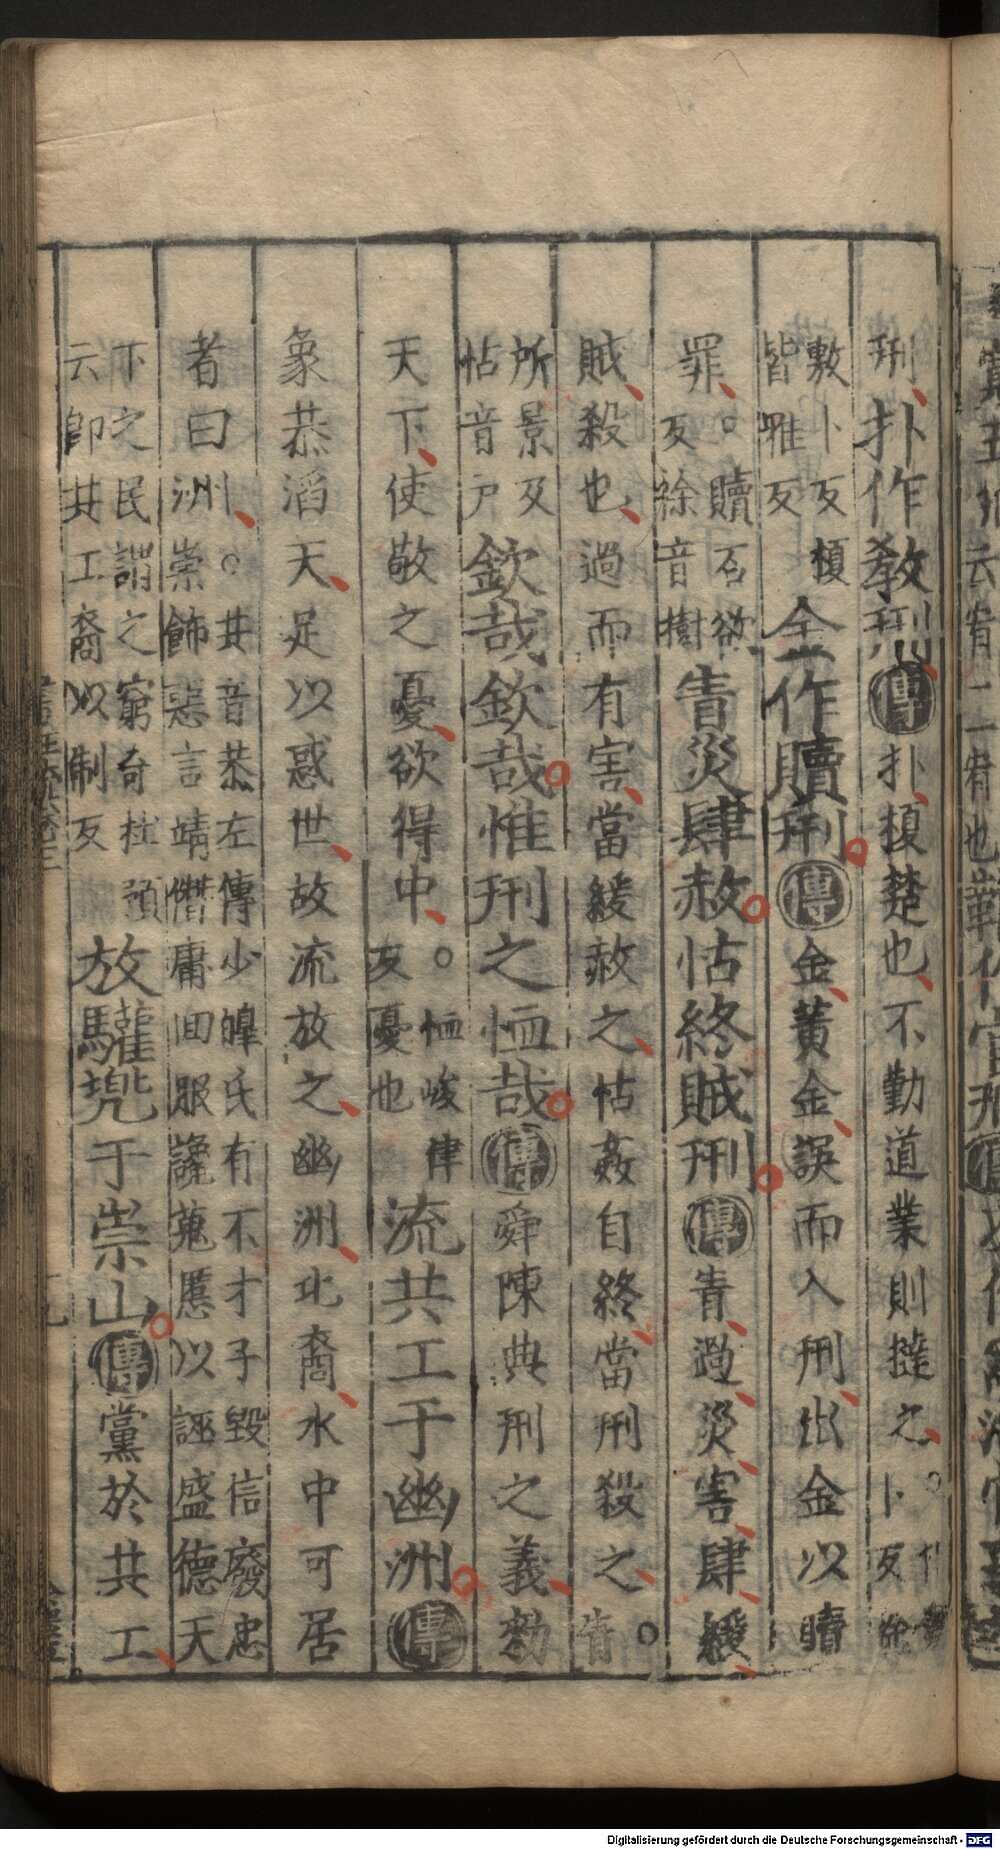 刑扑作教刑傳扑榎楚也不勤道業則撻之○扑
敷卜反榎
卜反徐
皆雅反
金作贖刑傳金黃金誤而入刑出金以贖
罪○贖石欲
反徐音樹
眚災肆赦怙終賊刑傳眚過災害肆緩
賊殺也過而有害當緩赦之怙姦自終當刑殺之○眚
所景反
怙音户
欽哉欽哉惟刑之恤哉傳舜陳典刑之義勑
天下使敬之憂欲得中○恤峻律
反憂也
流共工于幽洲傳
象恭滔天足以惑世故流放之幽洲北裔水中可居
者曰洲○共音恭左傳少皞氏有不才子毀信廢忠
崇飾惡言靖僭庸回服讒蒐慝以誣盛德天
下之民謂之窮奇杜預
云即共工裔以制反
放驩兜于崇山傳黨於共工
Digitalisierung gefördert durch die Deutsche Forschungsgemeinschaft - DFG